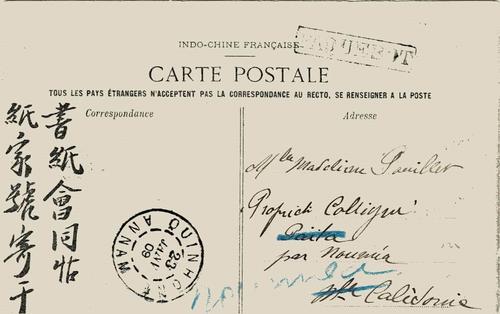 PAQUEBOT
INDO-CHINE FRANÇAISE
CARTE POSTALE
TOUS LES PAYS ÉTRANGERS N'ACCEPTENT PAS LA CORRESPONDANCE AU RECTO, SE RENSEIGNER A LA POSTE
Correspondance
Adresse
書紙會同帖
紙家號寄于
Mlle Madeleine
Païta
par Nouméa
Nlle Calédonie
Nouméa
QUINHON
09
ANNAM